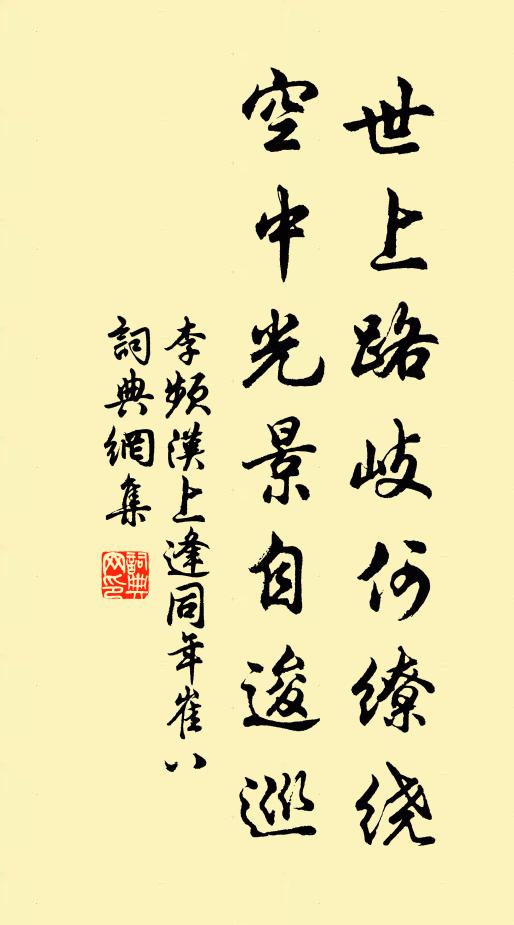 世上路歧何缭绕
空中光景自逡巡
李频漢上逢同年崔八
詞典網集
詞典網印